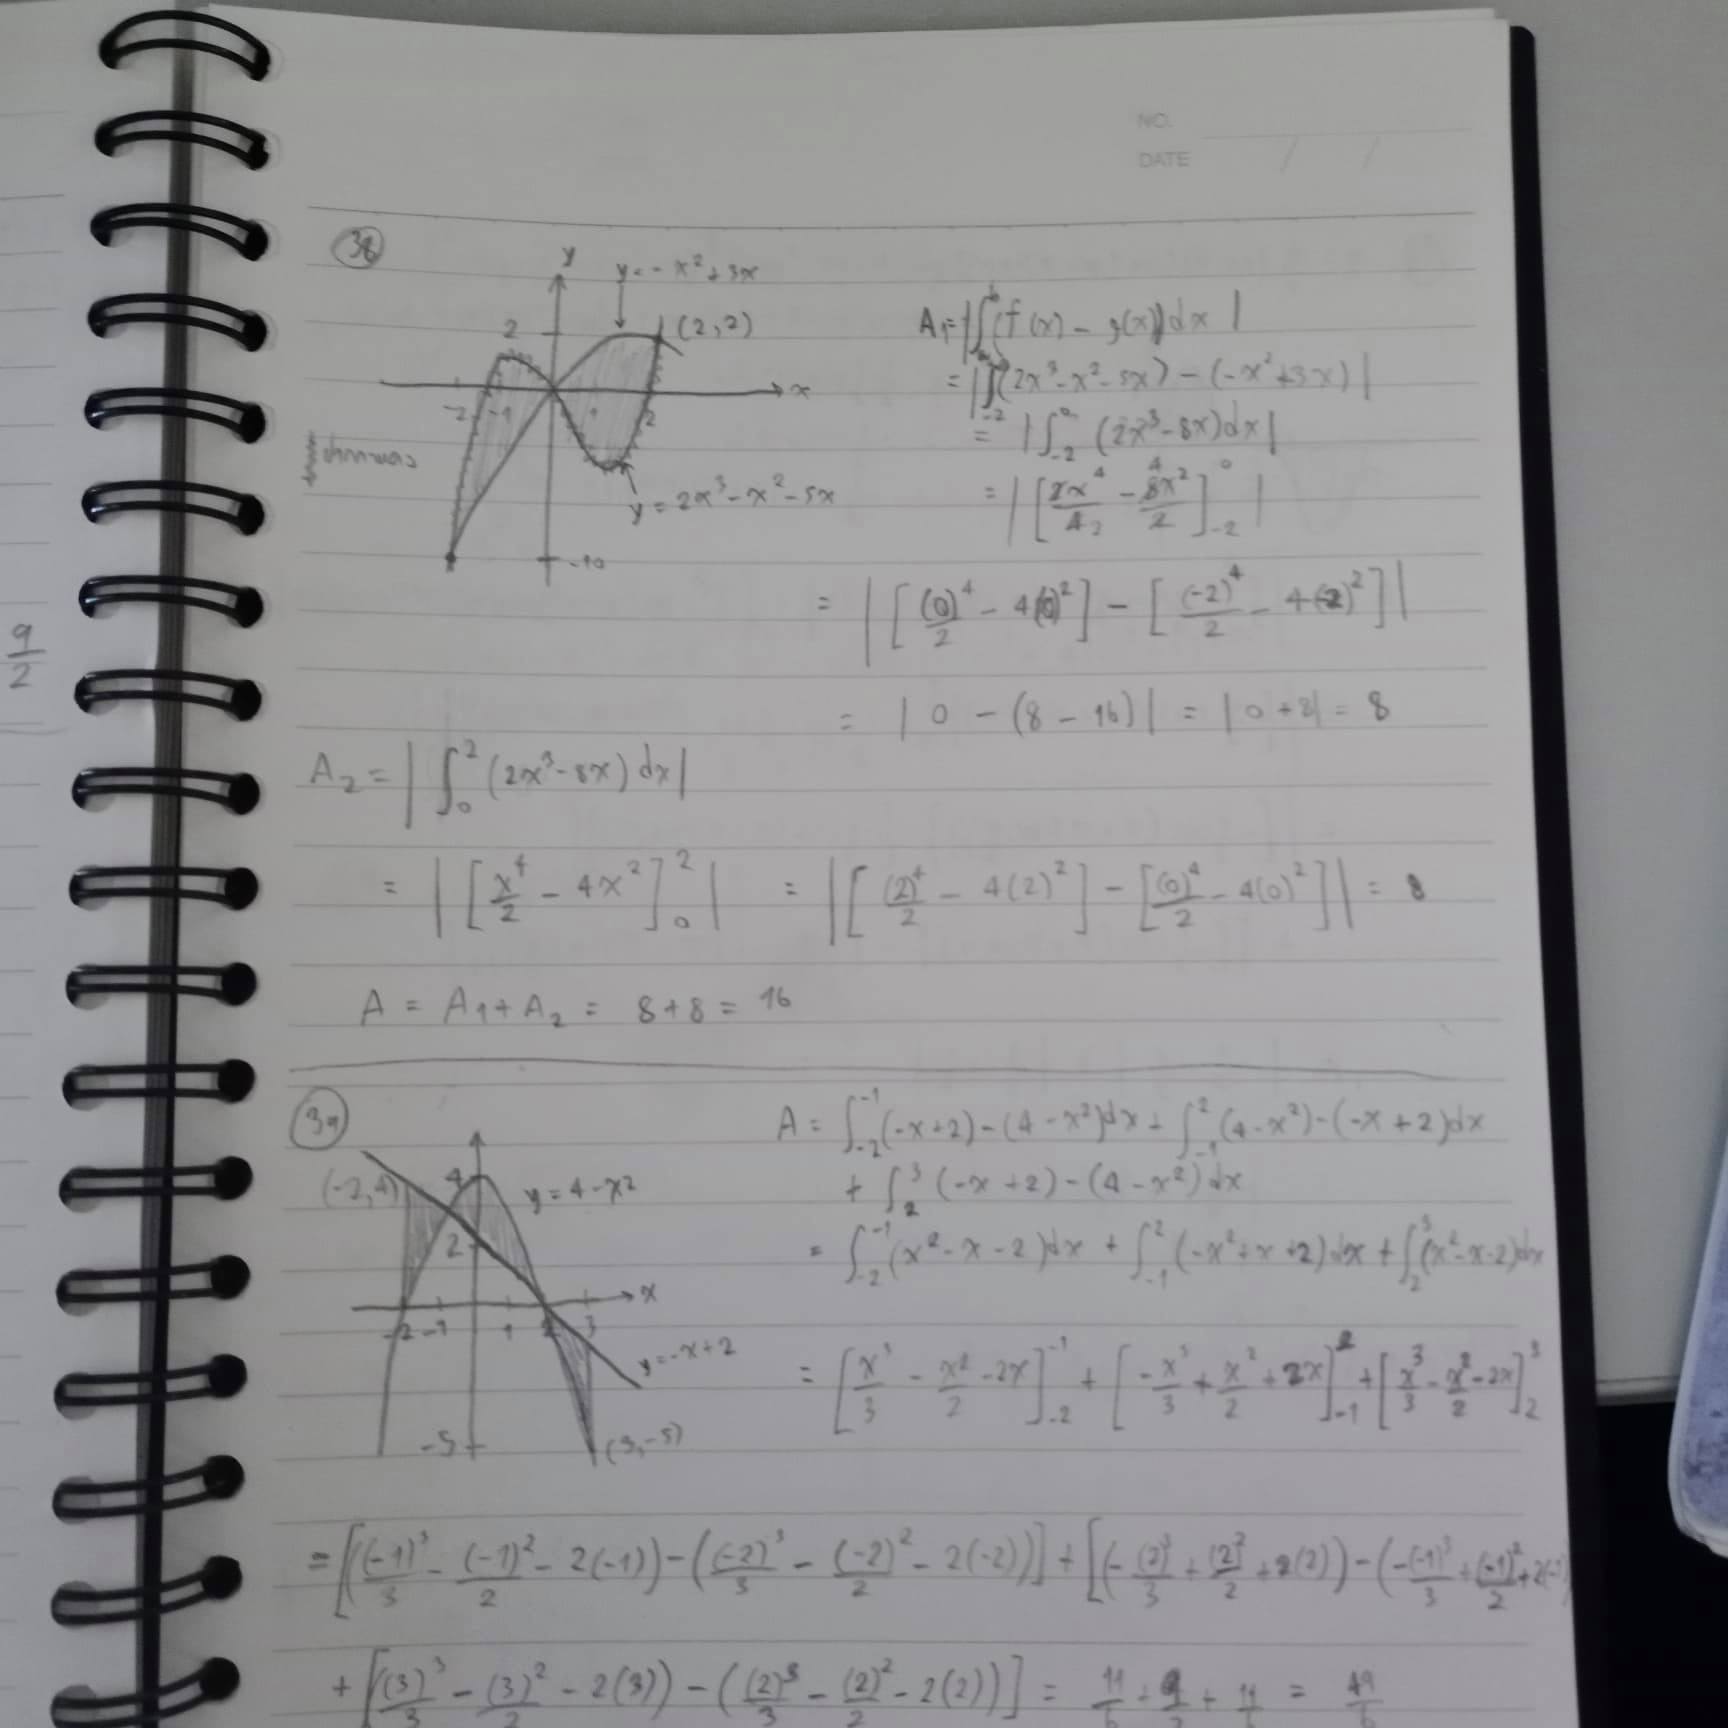 NO.
DATE / /
38
y
y = -x² + 3x
2
(2,2)
x
-2 -1 1 2
y = 2x³ - x² - 5x
-10
A₁ = |∫ₐᵇ (f(x) - g(x)) dx|
= |∫₋₂⁰ (2x³ - x² - 5x) - (-x² + 3x)|
= |∫₋₂⁰ (2x³ - 8x) dx|
= |[2x⁴/4 - 8x²/2]₋₂⁰|
9/2
= |[(0)⁴/2 - 4(0)²] - [(-2)⁴/2 - 4(-2)²]|
= |0 - (8 - 16)| = |0 + 8| = 8
A₂ = |∫₀² (2x³ - 8x) dx|
= |[x⁴/2 - 4x²]₀²| = |[(2)⁴/2 - 4(2)²] - [(0)⁴/2 - 4(0)²]| = 8
A = A₁ + A₂ = 8 + 8 = 16
39
(-2,4)
4
y = 4 - x²
2
x
-2 -1 1 2 3
y = -x + 2
-5
(3,-5)
A = ∫₋₂⁻¹ (-x + 2) - (4 - x²) dx + ∫₋₁² (4 - x²) - (-x + 2) dx
+ ∫₂³ (-x + 2) - (4 - x²) dx
= ∫₋₂⁻¹ (x² - x - 2) dx + ∫₋₁² (-x² + x + 2) dx + ∫₂³ (x² - x - 2) dx
= [x³/3 - x²/2 - 2x]₋₂⁻¹ + [-x³/3 + x²/2 + 2x]₋₁² + [x³/3 - x²/2 - 2x]₂³
= [((-1)³/3 - (-1)²/2 - 2(-1)) - ((-2)³/3 - (-2)²/2 - 2(-2))] + [(-(2)³/3 + (2)²/2 + 2(2)) - (-(-1)³/3 + (-1)²/2 + 2(-1)
+ [((3)³/3 - (3)²/2 - 2(3)) - ((2)³/3 - (2)²/2 - 2(2))] = 11/6 + 9/2 + 11/6 = 49/6